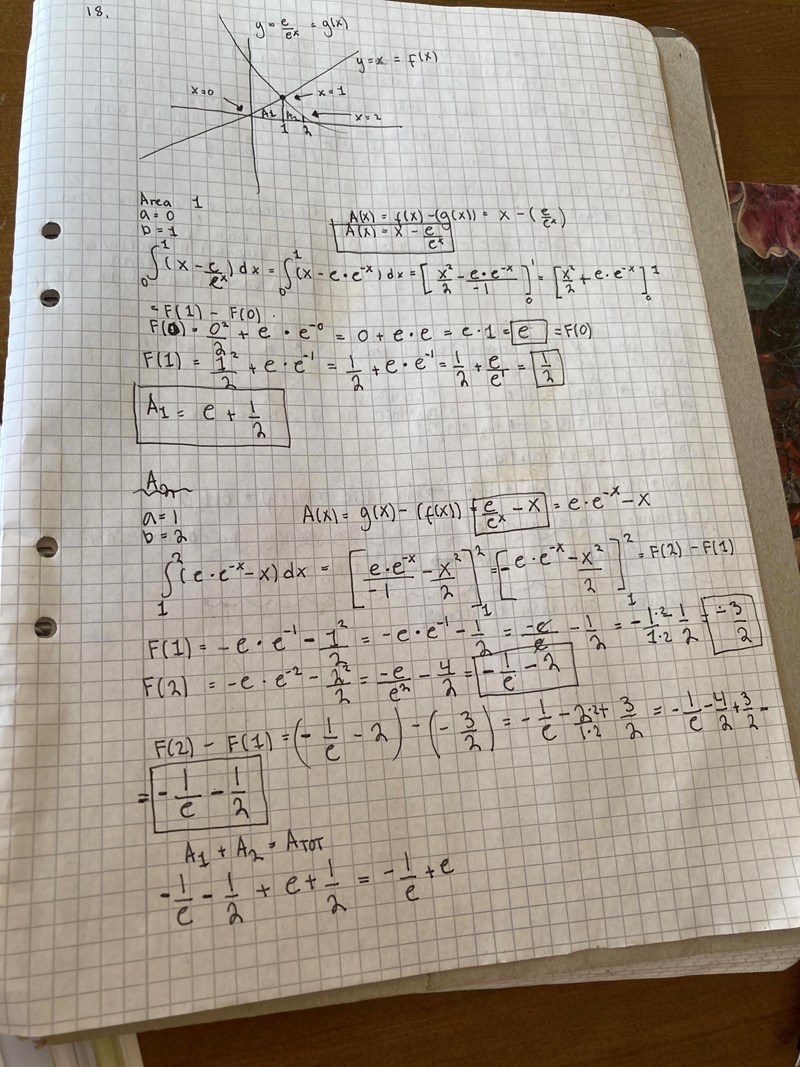 18.
y = e/e^x = g(x)
y = x = f(x)
x=0
x=1
A1 A2
x=2
1 2
Area 1
a = 0
b = 1
A(x) = f(x) - (g(x)) = x - (e/e^x)
A(x) = x - e/e^x
∫₀¹ (x - e/e^x) dx = ∫₀¹ (x - e·e^-x) dx = [x²/2 - e·e^-x/-1]₀¹ = [x²/2 + e·e^-x]₀¹
= F(1) - F(0).
F(0) = 0²/2 + e · e^-0 = 0 + e·e = e·1 = e = F(0)
F(1) = 1²/2 + e · e^-1 = 1/2 + e·e^-1 = 1/2 + e/e¹ = 1/2
A₁ = e + 1/2
A₂
a = 1
b = 2
A(x) = g(x) - (f(x)) = e/e^x - x = e·e^-x - x
∫₁² (e·e^-x - x) dx = [e·e^-x/-1 - x²/2]₁² = [-e·e^-x - x²/2]₁² = F(2) - F(1)
F(1) = -e · e^-1 - 1²/2 = -e·e^-1 - 1/2 = -e/e - 1/2 = -1·2/1·2 1/2 = -3/2
F(2) = -e · e^-2 - 2²/2 = -e/e² - 4/2 = -1/e - 2
F(2) - F(1) = (-1/e - 2) - (-3/2) = -1/e - 2·2/1·2 + 3/2 = -1/e - 4/2 + 3/2 =
= -1/e - 1/2
A₁ + A₂ = A_TOT
-1/e - 1/2 + e + 1/2 = -1/e + e